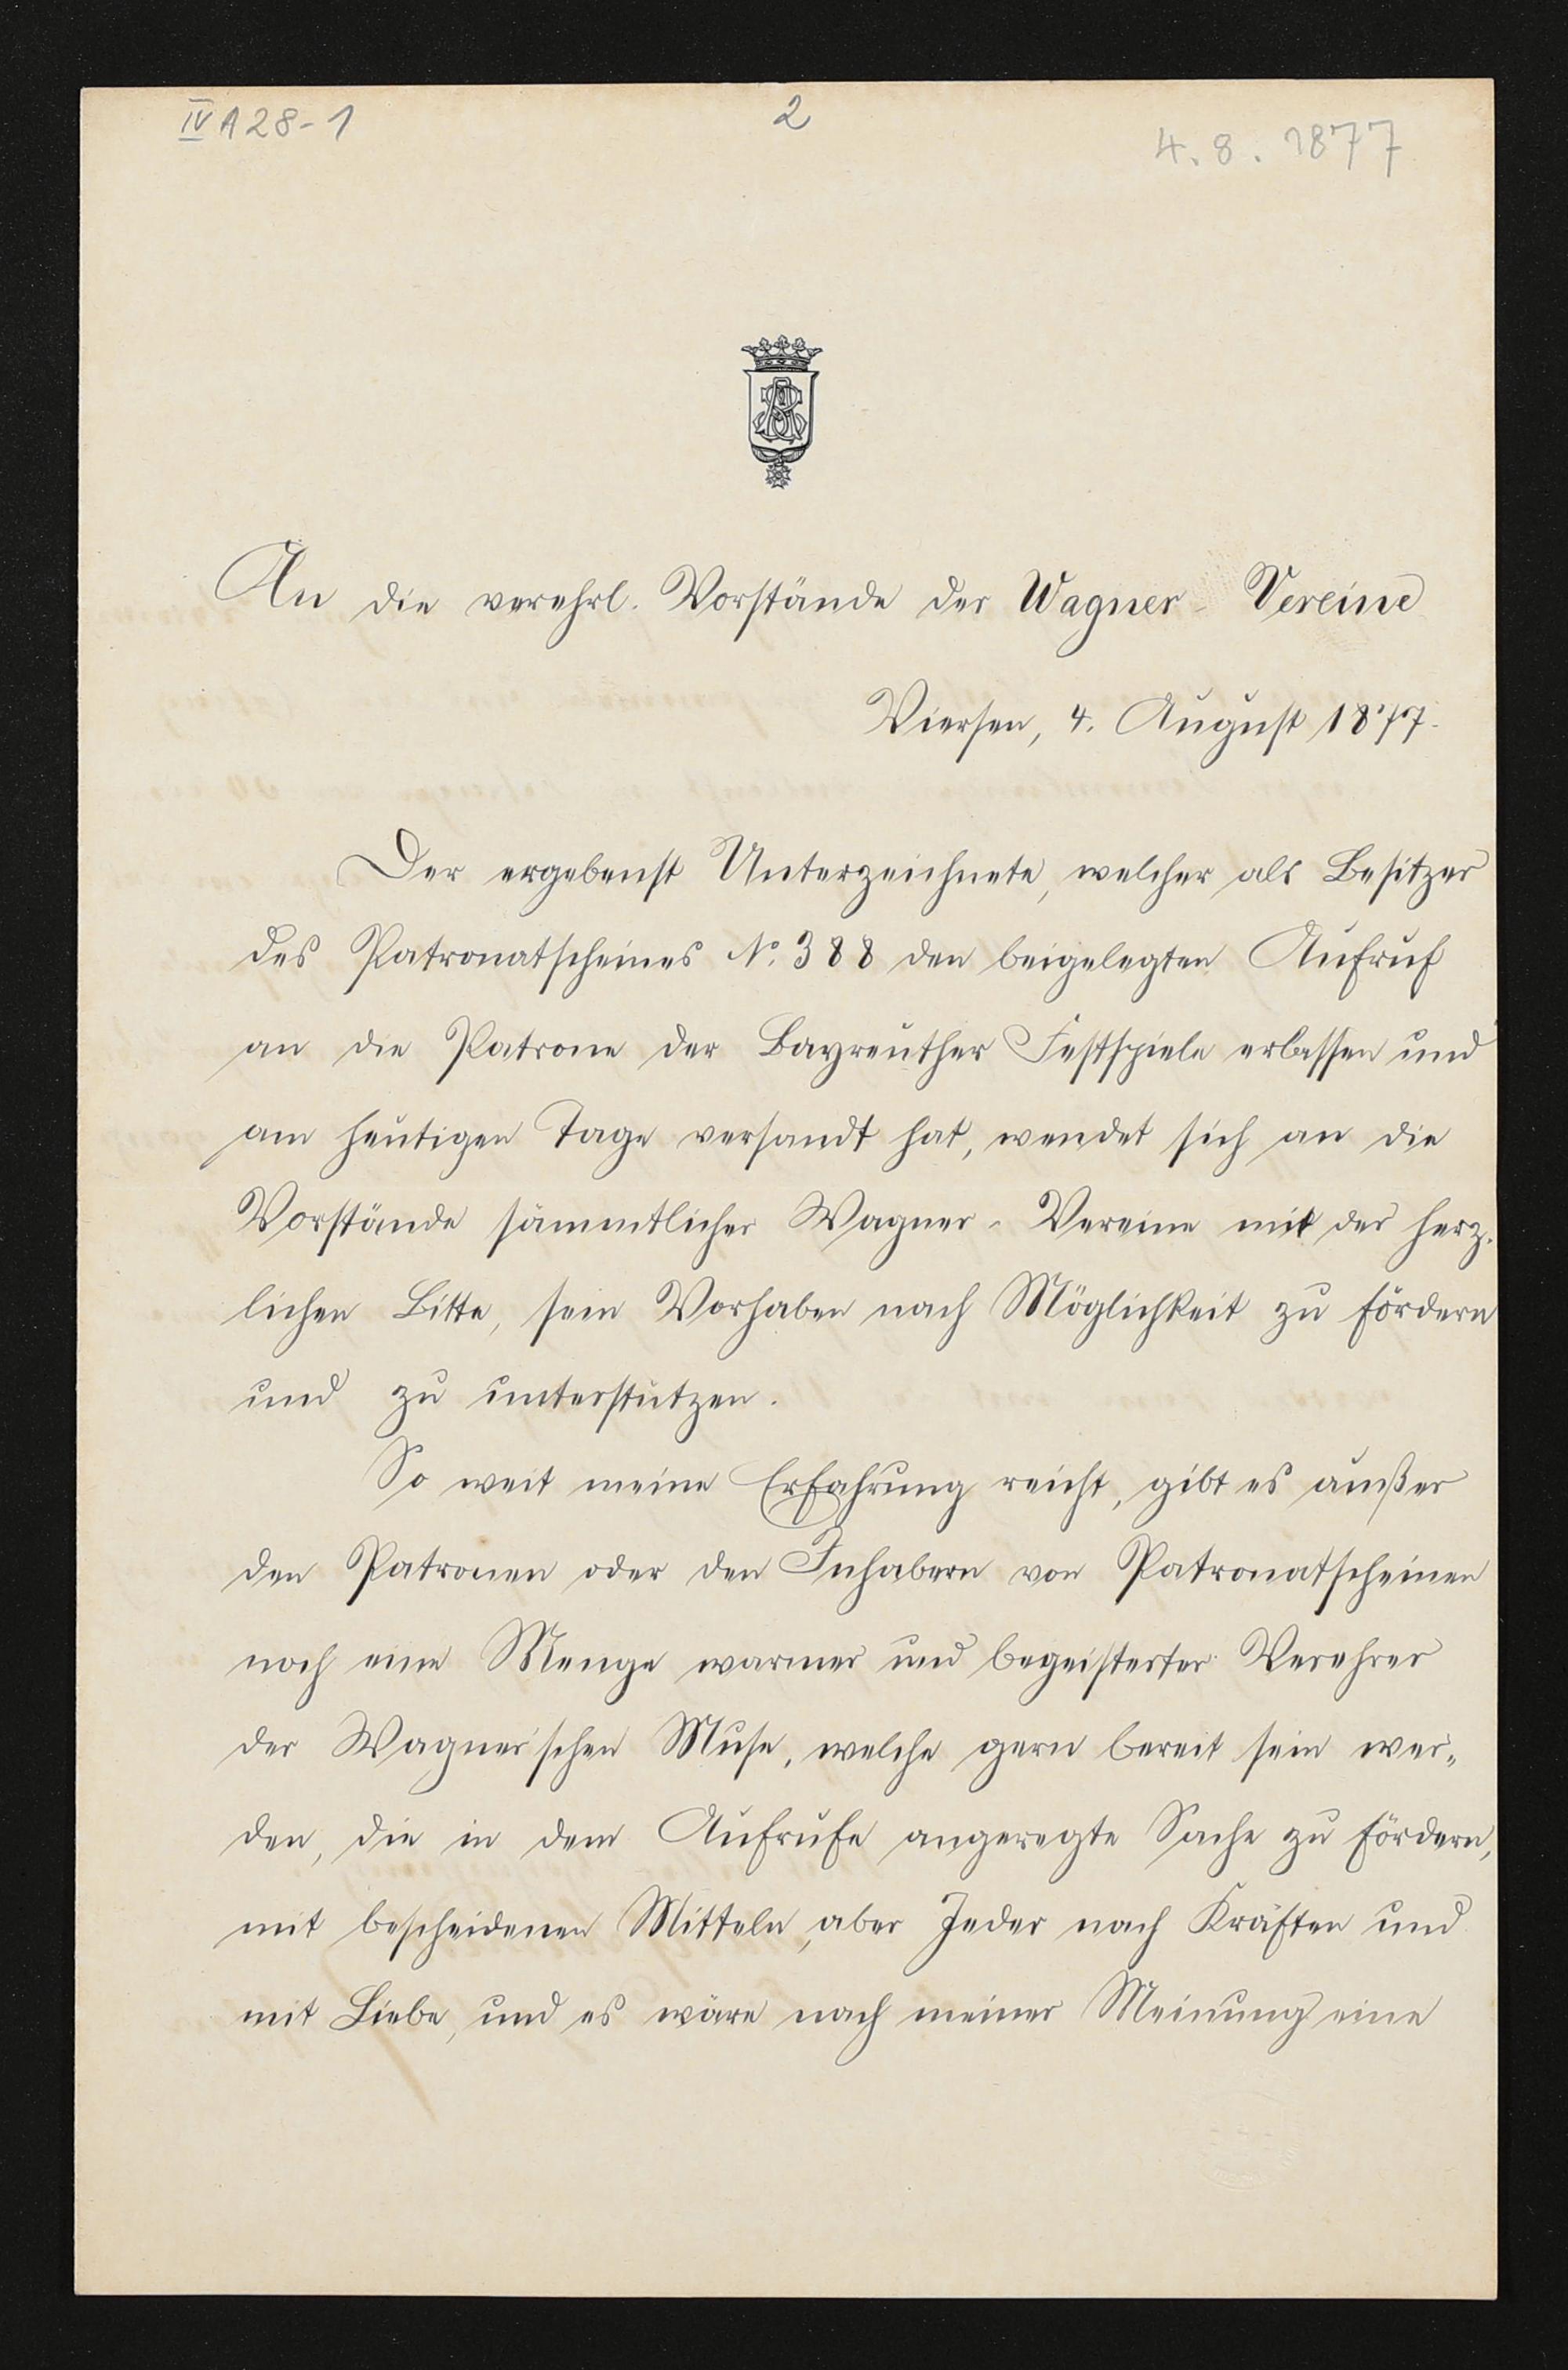 IV A 28-1
2
4. 8. 1877
An die verehrl. Vorstände der Wagner-Vereine
Viersen, 4. August 1877.
Der ergebenst Unterzeichnete, welcher als Besitzer
des Patronatscheines No. 388 den beigelegten Aufruf
an die Patrone der Bayreuther Festspiele erlassen und
am heutigen Tage versandt hat, wendet sich an die
Vorstände sämmtlicher Wagner-Vereine mit der herz-
lichen Bitte, sein Vorhaben nach Möglichkeit zu fördern
und zu unterstützen.
So weit meine Erfahrung reicht, gibt es außer
den Patronen oder den Inhabern von Patronatscheinen
noch eine Menge warmer und begeisterter Verehrer
der Wagner'schen Muse, welche gern bereit sein wer-
den, die in dem Aufrufe angeregte Sache zu fördern,
mit bescheidenen Mitteln, aber Jeder nach Kräften und
mit Liebe, und es wäre nach meiner Meinung eine